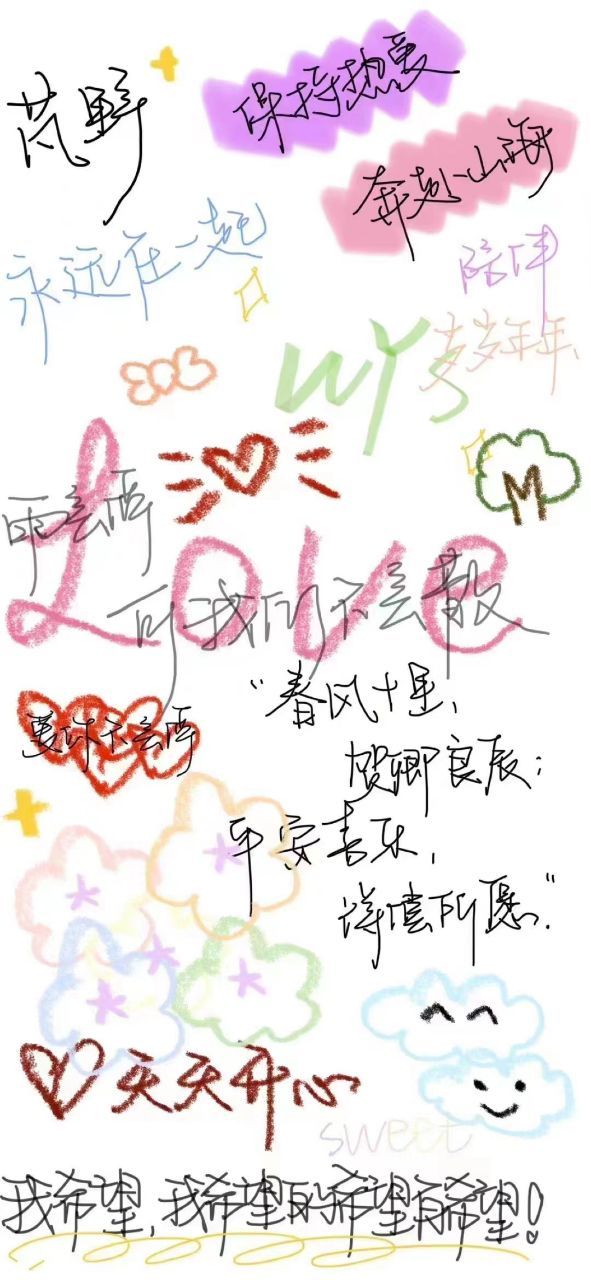 芃野
保持热爱
奔赴山海
永远在一起
陪伴
岁岁年年、
WYS
M
LOVE
雨会停
可我们不会散
爱你不会停
“春风十里，
贺卿良辰：
平安喜乐，
得偿所愿.”
天天开心
sweet
我希望，我希望的希望有希望！